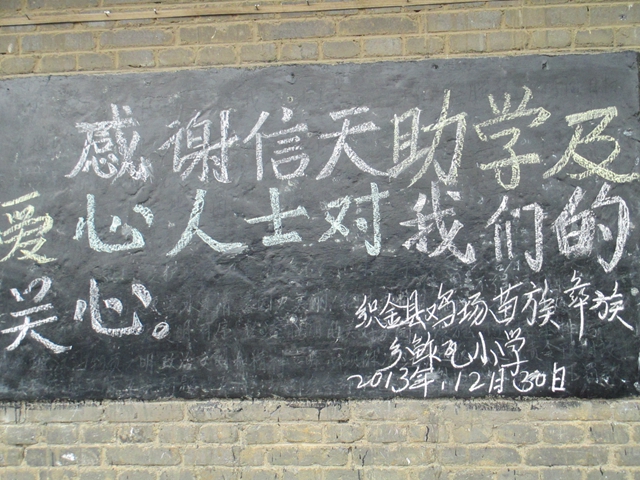 感谢信天助学及
爱心人士对我们的
关心。
织金县鸡场苗族彝族
乡 小学
2013年.12月30日